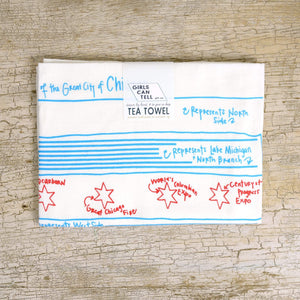 of the Great City of Chi
GIRLS
CAN
TELL
TEA TOWEL
Represents North
Side
Represents Lake Michigan
"North Branch"
Great Chicago Fire
World's
Columbian
Expo
Century of
Progress
Expo
epresents West Side